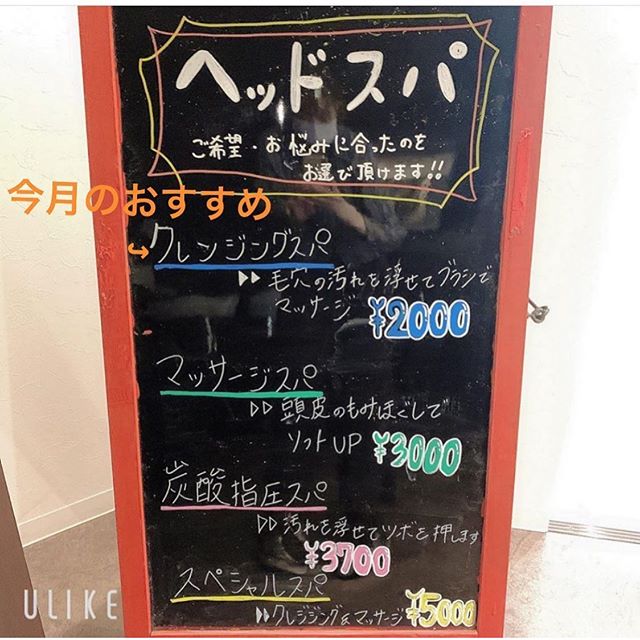 ヘッドスパ
ご希望・お悩みに合ったのを
お選び頂けます!!
今月のおすすめ
クレンジングスパ
毛穴の汚れを浮せてブラシで
マッサージ ¥2000
マッサージスパ
頭皮のもみほぐしで
ソフトUP ¥3000
炭酸指圧スパ
汚れを浮せてツボを押します
¥3700
スペシャルスパ
クレジジング&マッサージ ¥5000
ULIKE